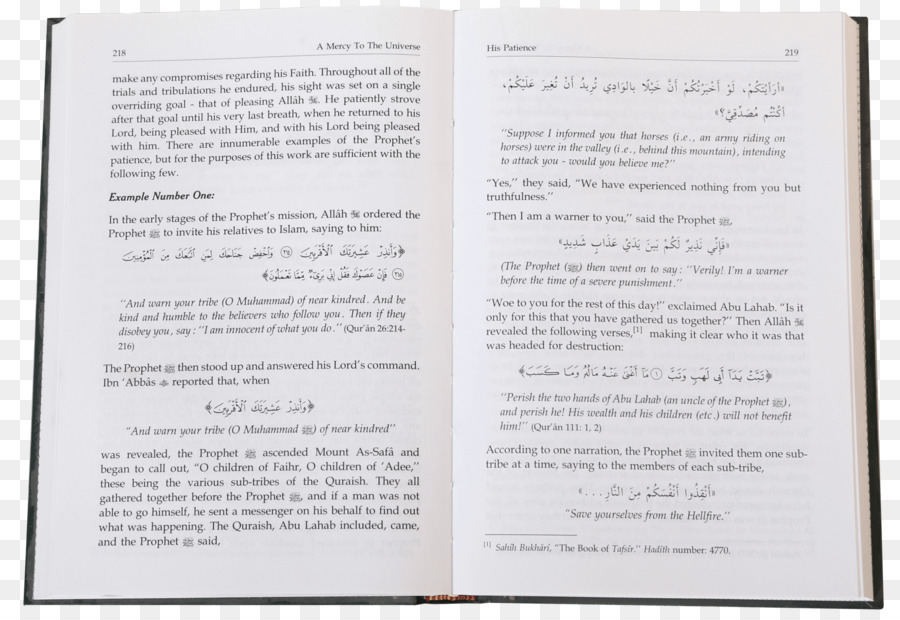 218
A Mercy To The Universe
make any compromises regarding his Faith. Throughout all of the
trials and tribulations he endured, his sight was set on a single
overriding goal - that of pleasing Allâh ﷻ. He patiently strove
after that goal until his very last breath, when he returned to his
Lord, being pleased with Him, and with his Lord being pleased
with him. There are innumerable examples of the Prophet's
patience, but for the purposes of this work are sufficient with the
following few.
Example Number One:
In the early stages of the Prophet's mission, Allâh ﷻ ordered the
Prophet ﷺ to invite his relatives to Islam, saying to him:
﴿وَأَنذِرْ عَشِيرَتَكَ ٱلْأَقْرَبِينَ ﴿٢١٤﴾ وَٱخْفِضْ جَنَاحَكَ لِمَنِ ٱتَّبَعَكَ مِنَ ٱلْمُؤْمِنِينَ
﴿٢١٥﴾ فَإِنْ عَصَوْكَ فَقُلْ إِنِّى بَرِىٓءٌ مِّمَّا تَعْمَلُونَ﴾
"And warn your tribe (O Muhammad) of near kindred. And be
kind and humble to the believers who follow you. Then if they
disobey you, say: "I am innocent of what you do." (Qur'ân 26:214-
216)
The Prophet ﷺ then stood up and answered his Lord's command.
Ibn 'Abbâs reported that, when
﴿وَأَنذِرْ عَشِيرَتَكَ ٱلْأَقْرَبِينَ﴾
"And warn your tribe (O Muhammad ﷺ) of near kindred"
was revealed, the Prophet ﷺ ascended Mount As-Safâ and
began to call out, "O children of Faihr, O children of 'Adee,"
these being the various sub-tribes of the Quraish. They all
gathered together before the Prophet ﷺ, and if a man was not
able to go himself, he sent a messenger on his behalf to find out
what was happening. The Quraish, Abu Lahab included, came,
and the Prophet ﷺ said,
His Patience
219
«أَرَأَيْتَكُمْ، لَوْ أَخْبَرْتُكُمْ أَنَّ خَيْلًا بِالوَادِي تُرِيدُ أَنْ تُغِيرَ عَلَيْكُمْ،
أَكُنْتُم مُصَدِّقِيَّ؟»
"Suppose I informed you that horses (i.e., an army riding on
horses) were in the valley (i.e., behind this mountain), intending
to attack you - would you believe me?"
"Yes," they said, "We have experienced nothing from you but
truthfulness."
"Then I am a warner to you," said the Prophet ﷺ,
«فَإِنِّي نَذِيرٌ لَكُمْ بَيْنَ يَدَيْ عَذَابٍ شَدِيدٍ»
(The Prophet (ﷺ) then went on to say: "Verily! I'm a warner
before the time of a severe punishment."
"Woe to you for the rest of this day!" exclaimed Abu Lahab. "Is it
only for this that you have gathered us together?" Then Allâh ﷻ
revealed the following verses,[1] making it clear who it was that
was headed for destruction:
﴿تَبَّتْ يَدَآ أَبِى لَهَبٍ وَتَبَّ ﴿١﴾ مَآ أَغْنَىٰ عَنْهُ مَالُهُۥ وَمَا كَسَبَ﴾
"Perish the two hands of Abu Lahab (an uncle of the Prophet ﷺ),
and perish he! His wealth and his children (etc.) will not benefit
him!" (Qur'ân 111: 1, 2)
According to one narration, the Prophet ﷺ invited them one sub-
tribe at a time, saying to the members of each sub-tribe,
«أَنْقِذُوا أَنْفُسَكُمْ مِنَ النَّارِ...»
"Save yourselves from the Hellfire."
[1] Sahîh Bukhâri, "The Book of Tafsîr." Hadîth number: 4770.